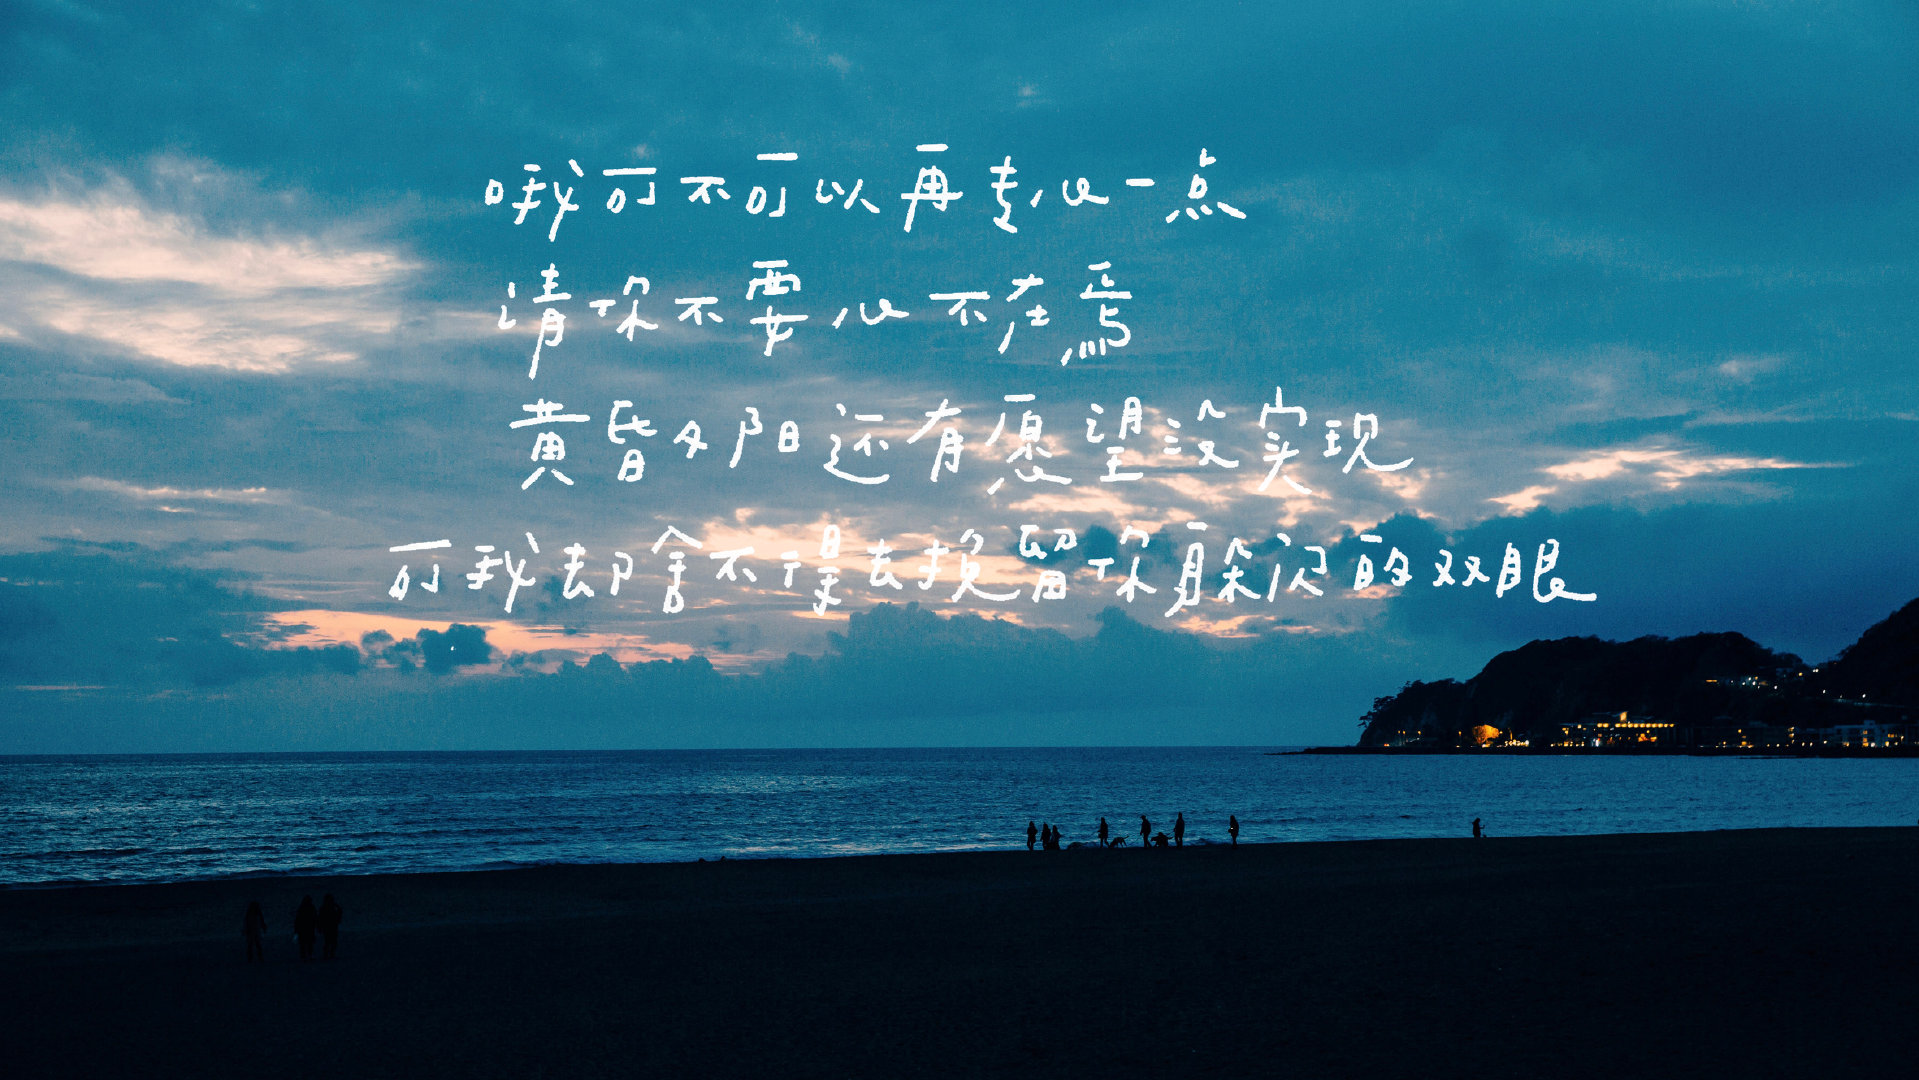 哦可不可以再专心一点
请你不要心不在焉
黄昏夕阳还有愿望没实现
可我却舍不得去换留你躲闪的双眼